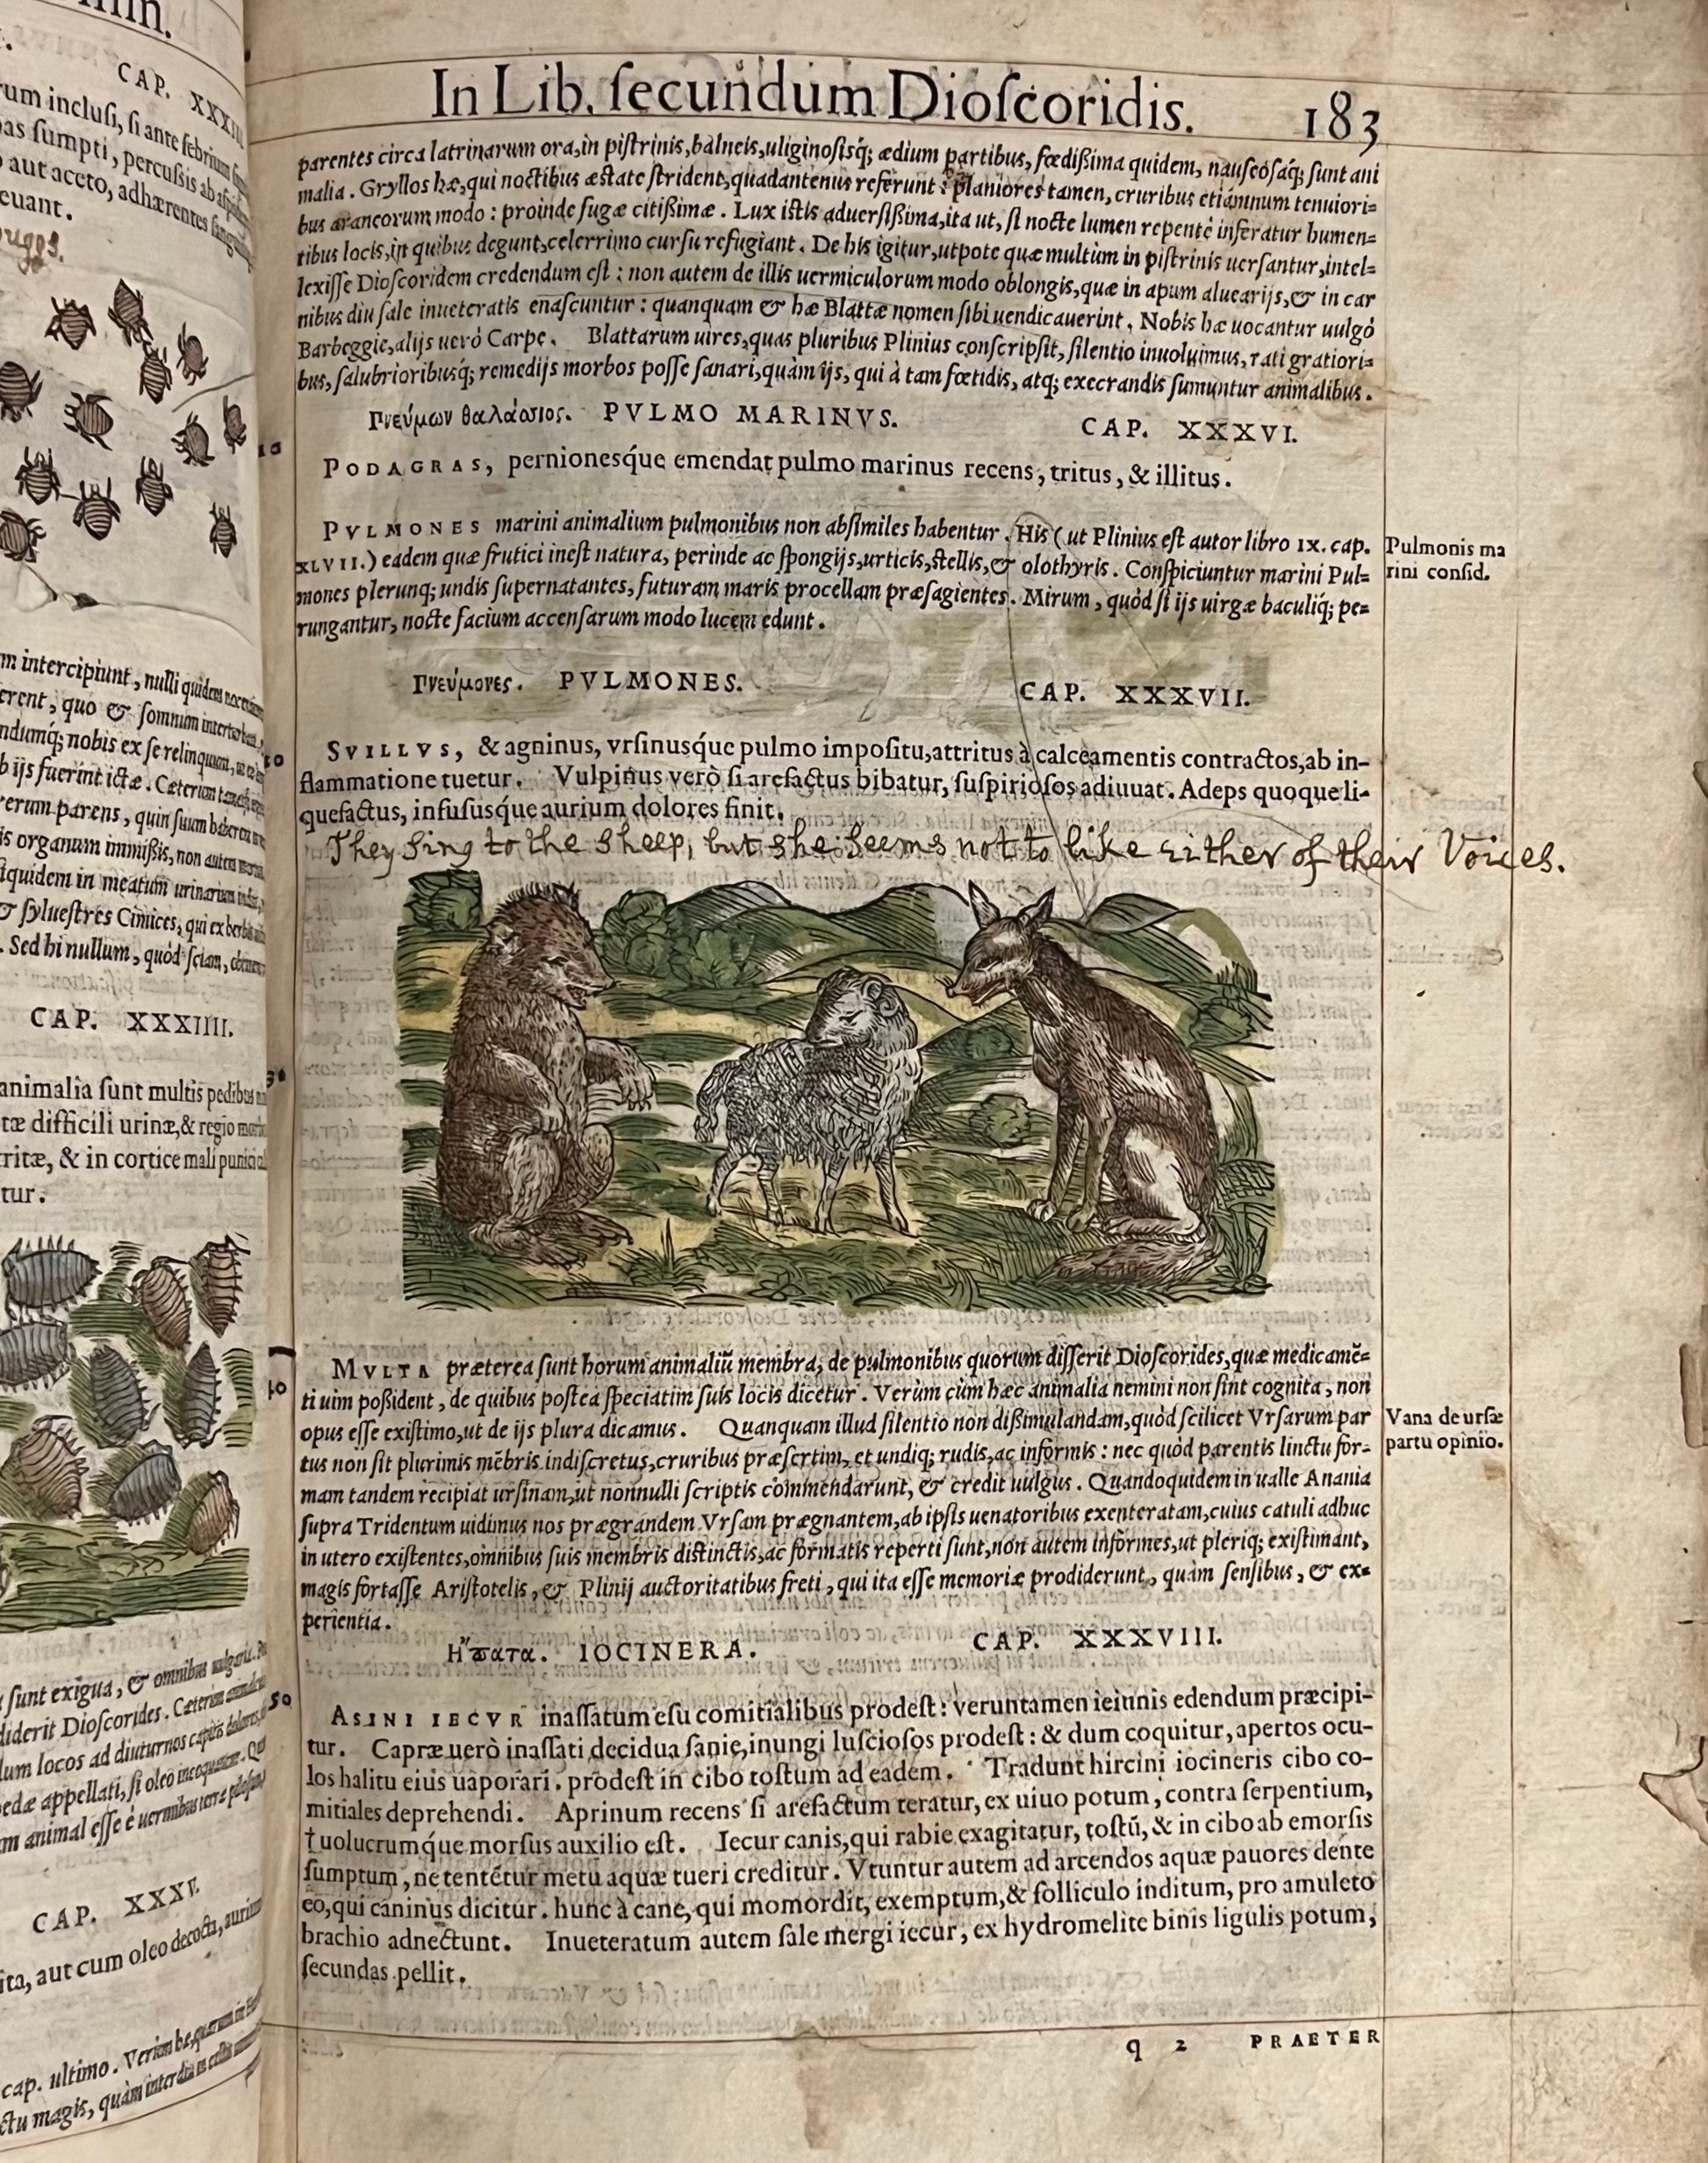 min.
CAP. XXXIII
rum inclusi, si ante febrium
pas sumpti, percussis ab aspide
aut aceto, adhærentes sangui
euant.
m intercipiunt, nulli quidem
erent, quo & somnum
ndumq́; nobis ex se relinquunt,
b ijs fuerint ictæ. Cæterum
rerum parens, quin suum
is organum immissis, non autem
iquidem in meatum urinarium
& syluestres Cimices, qui ex
. Sed hi nullum, quòd sciam,
CAP. XXXIIII.
animalia sunt multis pedibus
tæ difficili urinæ, & regio
ritæ, & in cortice mali punici
tur.
sunt exigua, & omnibus
diderit Dioscorides. Cæterum
dum locos ad diuturnos capitis dolores,
pedæ appellati, si oleo
m animal esse è uermibus terræ
CAP. XXXV.
ita, aut cum oleo decocta,
cap. ultimo. Verùm
ctu magis, quàm interdiu
In Lib. ſecundum Dioſcoridis. 183
parentes circa latrinarum ora, in piſtrinis, balneis, uliginoſisq́; ædium partibus, fœdißima quidem, nauſeoſaq́; ſunt ani
malia. Gryllos hæ, qui noctibus æſtate ſtrident, quadantenus referunt: planiores tamen, cruribus etiámnum tenuiori=
bus araneorum modo: proinde fugæ citißimæ. Lux iſtis aduerſißima, ita ut, ſi nocte lumen repentè inferatur humen=
tibus locis, in quibus degunt, celerrimo curſu refugiant. De his igitur, utpote quæ multùm in piſtrinis uerſantur, intel=
lexiſſe Dioſcoridem credendum eſt: non autem de illis uermiculorum modo oblongis, quæ in apum aluearijs, & in car
nibus diu ſale inueteratis enaſcuntur: quanquam & hæ Blattæ nomen ſibi uendicauerint. Nobis hæ uocantur uulgò
Barbeggie, alijs uerò Carpe. Blattarum uires, quas pluribus Plinius conſcripſit, ſilentio inuoluimus, rati gratiori=
bus, ſalubrioribusq́; remedijs morbos poſſe ſanari, quàm ijs, qui à tam fœtidis, atq; execrandis ſumuntur animalibus.
Πνεύμων θαλάσσιος. PVLMO MARINVS. CAP. XXXVI.
10
PODAGRAS, pernionesq́ue emendat pulmo marinus recens, tritus, & illitus.
PVLMONES marini animalium pulmonibus non abſimiles habentur. His (ut Plinius eſt autor libro IX. cap.
XLVII.) eadem quæ frutici ineſt natura, perinde ac ſpongijs, urticis, ſtellis, & olothyris. Conſpiciuntur marini Pul=
mones plerunq; undis ſupernatantes, futuram maris procellam præſagientes. Mirum, quòd ſi ijs uirgæ baculiq́; pe=
rungantur, nocte facium accenſarum modo lucem edunt.
Pulmonis ma
rini conſid.
Πνεύμονες. PVLMONES. CAP. XXXVII.
SVILLVS, & agninus, vrſinusq́ue pulmo impoſitu, attritus à calceamentis contractos, ab in-
flammatione tuetur. Vulpinus verò ſi arefactus bibatur, ſuſpirioſos adiuuat. Adeps quoque li-
quefactus, infuſusq́ue aurium dolores finit.
They sing to the sheep, but she seems not to like either of their Voices.
30
MVLTA præterea ſunt horum animaliũ membra, de pulmonibus quorum diſſerit Dioſcorides, quæ medicamẽ=
40
ti uim poßident, de quibus poſtea ſpeciatim ſuis locis dicetur. Verùm cùm hæc animalia nemini non ſint cognita, non
opus eſſe exiſtimo, ut de ijs plura dicamus. Quanquam illud ſilentio non dißimulandum, quòd ſcilicet Vrſarum par
tus non ſit plurimis mẽbris indiſcretus, cruribus præſertim, et undiq; rudis, ac informis: nec quòd parentis linctu for-
mam tandem recipiat urſinam, ut nonnulli ſcriptis cõmmendarunt, & credit uulgus. Quandoquidem in ualle Anania
ſupra Tridentum uidimus nos prægrandem Vrſam prægnantem, ab ipſis uenatoribus exenteratam, cuius catuli adhuc
in utero exiſtentes, omnibus ſuis membris diſtinctis, ac formatis reperti ſunt, non autem informes, ut pleriq; exiſtimant,
magis fortaſſe Ariſtotelis, & Plinij auctoritatibus freti, qui ita eſſe memoriæ prodiderunt, quàm ſenſibus, & ex=
perientia.
Vana de urſæ
partu opinio.
Η῞πατα. IOCINERA. CAP. XXXVIII.
50
ASINI IECVR inaſſatum eſu comitialibus prodeſt: veruntamen ieiunis edendum præcipi-
tur. Capræ uerò inaſſati decidua ſanie, inungi luſcioſos prodeſt: & dum coquitur, apertos ocu-
los halitu eius uaporari. prodeſt in cibo toſtum ad eadem. Tradunt hircini iocineris cibo co-
mitiales deprehendi. Aprinum recens ſi arefactum teratur, ex uiuo potum, contra ſerpentium,
† uolucrumq́ue morſus auxilio eſt. Iecur canis, qui rabie exagitatur, toſtũ, & in cibo ab emorſis
ſumptum, ne tentẽtur metu aquæ tueri creditur. Vtuntur autem ad arcendos aquæ pauores dente
eo, qui caninus dicitur. hunc à cane, qui momordit, exemptum, & folliculo inditum, pro amuleto
brachio adnectunt. Inueteratum autem ſale mergi iecur, ex hydromelite binis ligulis potum,
ſecundas pellit.
q 2 PRAETER